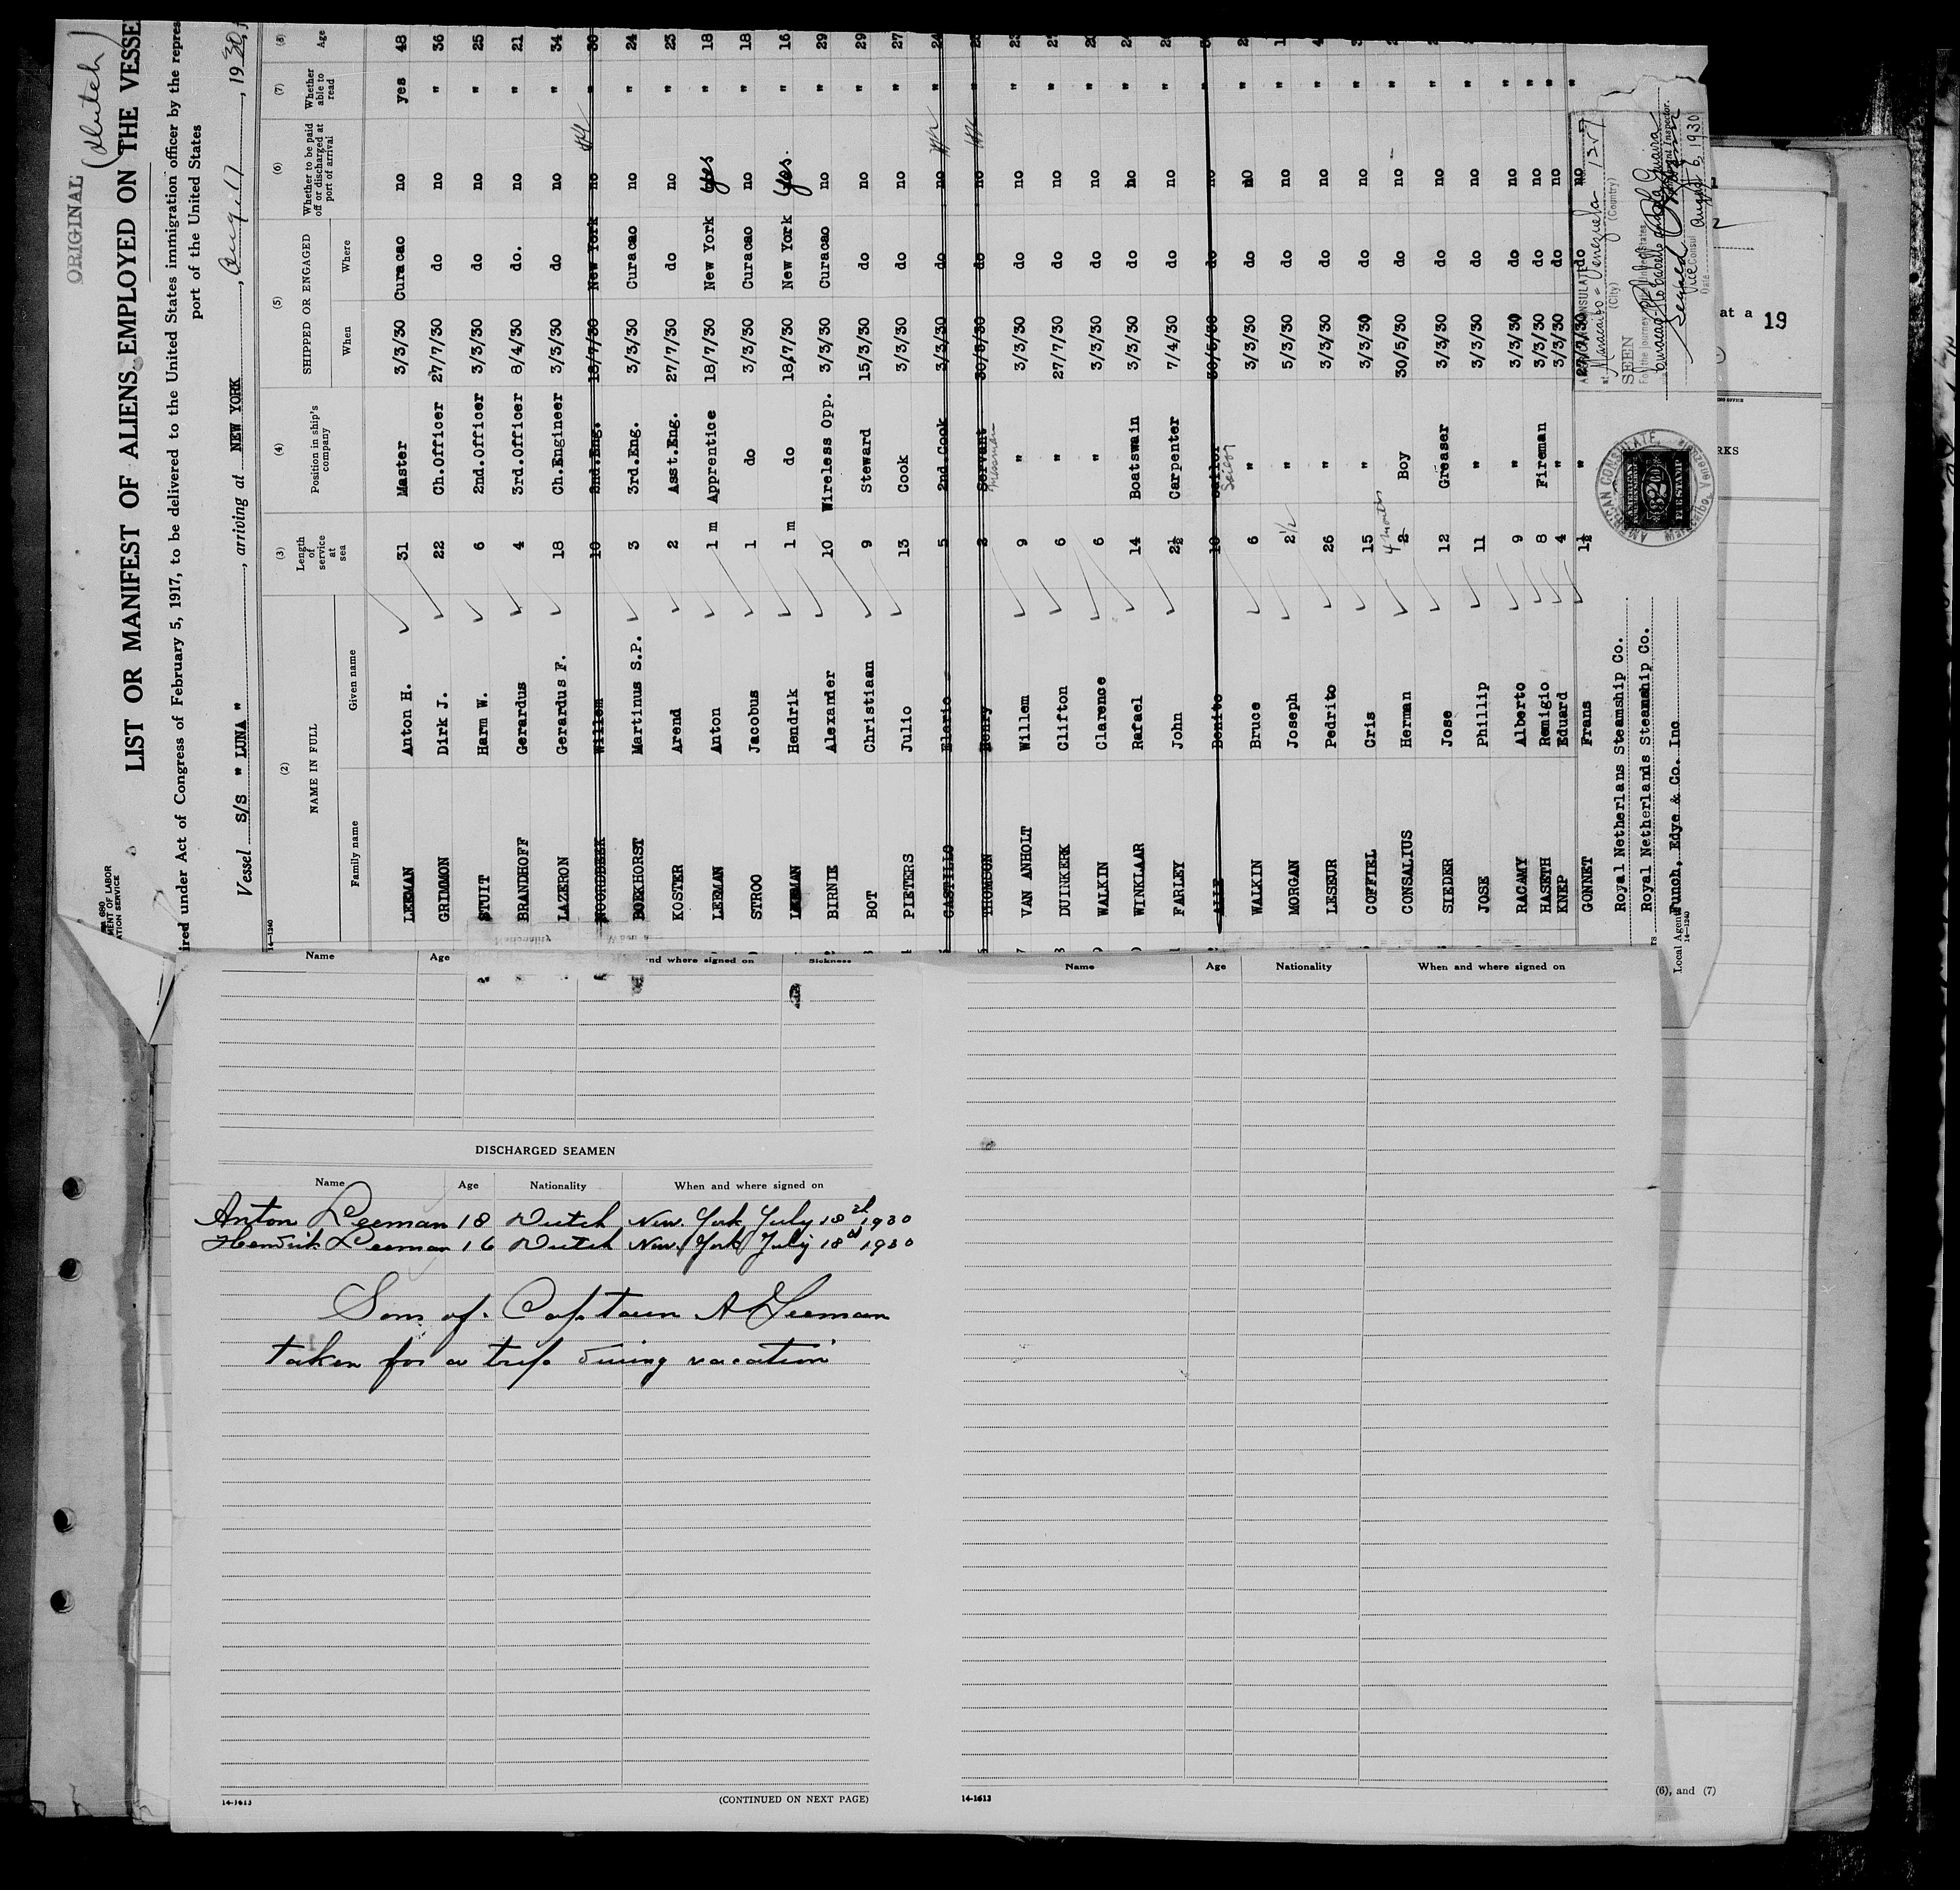 ORIGINAL (Dutch)
LIST OR MANIFEST OF ALIENS EMPLOYED ON THE VESSE
ired under Act of Congress of February 5, 1917, to be delivered to the United States immigration officer by the repres
port of the United States
Vessel S/S " LUNA ", arriving at NEW YORK, Aug. 17, 1930,
(2) (3) (4) (5) (6) (7) (8)
NAME IN FULL Length of service at sea Position in ship's company SHIPPED OR ENGAGED Whether to be paid off or discharged at port of arrival Whether able to read Age
Family name Given name When Where
LEEMAN Anton H. 31 Master 3/3/30 Curacao no yes 48
GRIMMON Dirk J. 22 Ch.Officer 27/7/30 do no " 36
STUIT Harm W. 6 2nd.Officer 3/3/30 do no " 25
BRANDHOFF Gerardus 4 3rd.Officer 8/4/30 do. no " 21
LAZERON Gerardus F. 18 Ch.Engineer 3/3/30 do no " 34
NOORDBEEK Willem 10 2nd.Eng. 18/7/30 New York no " 30
BOEKHORST Martinus S.P. 3 3rd.Eng. 3/3/30 Curacao no " 24
KOSTER Arend 2 Asst.Eng. 27/7/30 do no " 23
LEEMAN Anton 1 m Apprentice 18/7/30 New York yes " 18
STROO Jacobus 1 do 3/3/30 Curacao no " 18
LEEMAN Hendrik 1 m do 18/7/30 New York yes. " 16
BIRNIE Alexander 10 Wireless Opp. 3/3/30 Curacao no " 29
BOT Christiaan 9 Steward 15/3/30 do no " 29
PIETERS Julio 13 Cook 3/3/30 do no " 27
CASTILLO Elario 5 2nd.Cook 3/3/30 do no " 24
THOMSON Henry 2 Servant 30/3/30 do no "
messman
VAN ANHOLT Willem 9 " 3/3/30 do no "
DUINKERK Clifton 6 " 27/7/30 do no "
WALKIN Clarence 6 " 3/3/30 do no "
WINKLAAR Rafael 14 Boatswain 3/3/30 do no "
FARLEY John 2½ Carpenter 7/4/30 do no "
Benito 10 Sailor 30/5/30 do no "
Sailor
WALKIN Bruce 6 " 3/3/30 do no "
MORGAN Joseph 2½ " 5/3/30 do no "
LESEUR Pedrito 26 " 3/3/30 do no "
COFFIEL Cris 15 " 3/3/30 do no "
CONSALIUS Herman 2 4 months Boy 30/5/30 do no "
SIEDER Jose 12 Greaser 3/3/30 do no "
JOSE Phillip 11 " 3/3/30 do no "
RAGAMY Alberto 9 " 3/3/30 do no "
HASETH Remigio 8 Fireman 3/3/30 do no "
KNEP Eduard 4 " 3/3/30 do no "
GONNET Frans 1½ " 27/7/30 do no "
Royal Netherlans Steamship Co.
Royal Netherlands Steamship Co.
Local Agent Funch, Edye & Co. Inc
14-1240
at Maracaibo - Venezuela
(City) (Country)
SEEN
For the journey to the United States
Vice Consul
Date August 6, 1930
AMERICAN CONSULATE
FEE STAMP
at a 19
RKS
(6), and (7)
Name Age nd where signed on Sickness
DISCHARGED SEAMEN
Name Age Nationality When and where signed on
Anton Leeman 18 Dutch New York July 18th 1930
Hendrik Leeman 16 Dutch New York July 18th 1930
Sons of Captain A Leeman
taken for a trip during vacation
14-1613 (CONTINUED ON NEXT PAGE)
Name Age Nationality When and where signed on
14-1613